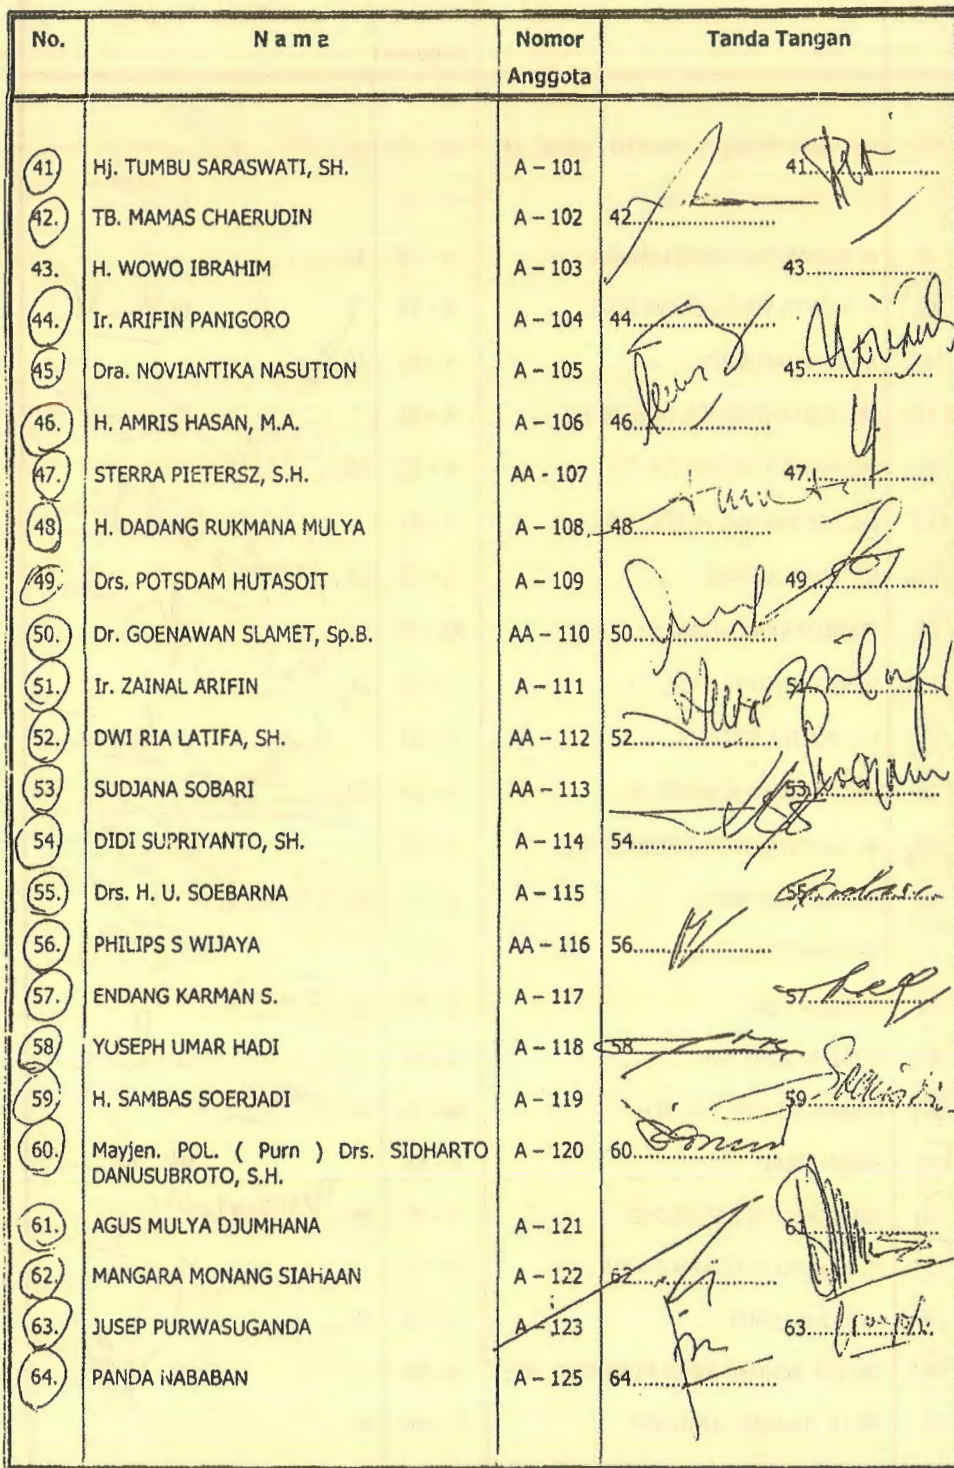 No. Name Nomor Anggota Tanda Tangan
41. Hj. TUMBU SARASWATI, SH. A – 101 41....................
42. TB. MAMAS CHAERUDIN A – 102 42....................
43. H. WOWO IBRAHIM A – 103 43....................
44. Ir. ARIFIN PANIGORO A – 104 44....................
45. Dra. NOVIANTIKA NASUTION A – 105 45....................
46. H. AMRIS HASAN, M.A. A – 106 46....................
47. STERRA PIETERSZ, S.H. AA - 107 47....................
48. H. DADANG RUKMANA MULYA A – 108 48....................
49. Drs. POTSDAM HUTASOIT A – 109 49....................
50. Dr. GOENAWAN SLAMET, Sp.B. AA – 110 50....................
51. Ir. ZAINAL ARIFIN A – 111 51....................
52. DWI RIA LATIFA, SH. AA – 112 52....................
53. SUDJANA SOBARI AA – 113 53....................
54. DIDI SUPRIYANTO, SH. A – 114 54....................
55. Drs. H. U. SOEBARNA A – 115 55....................
56. PHILIPS S WIJAYA AA – 116 56....................
57. ENDANG KARMAN S. A – 117 57....................
58. YOSEPH UMAR HADI A – 118 58....................
59. H. SAMBAS SOERJADI A – 119 59....................
60. Mayjen. POL. ( Purn ) Drs. SIDHARTO A – 120 60....................
DANUSUBROTO, S.H.
61. AGUS MULYA DJUMHANA A – 121 61....................
62. MANGARA MONANG SIAHAAN A – 122 62....................
63. JUSEP PURWASUGANDA A – 123 63....................
64. PANDA NABABAN A – 125 64....................